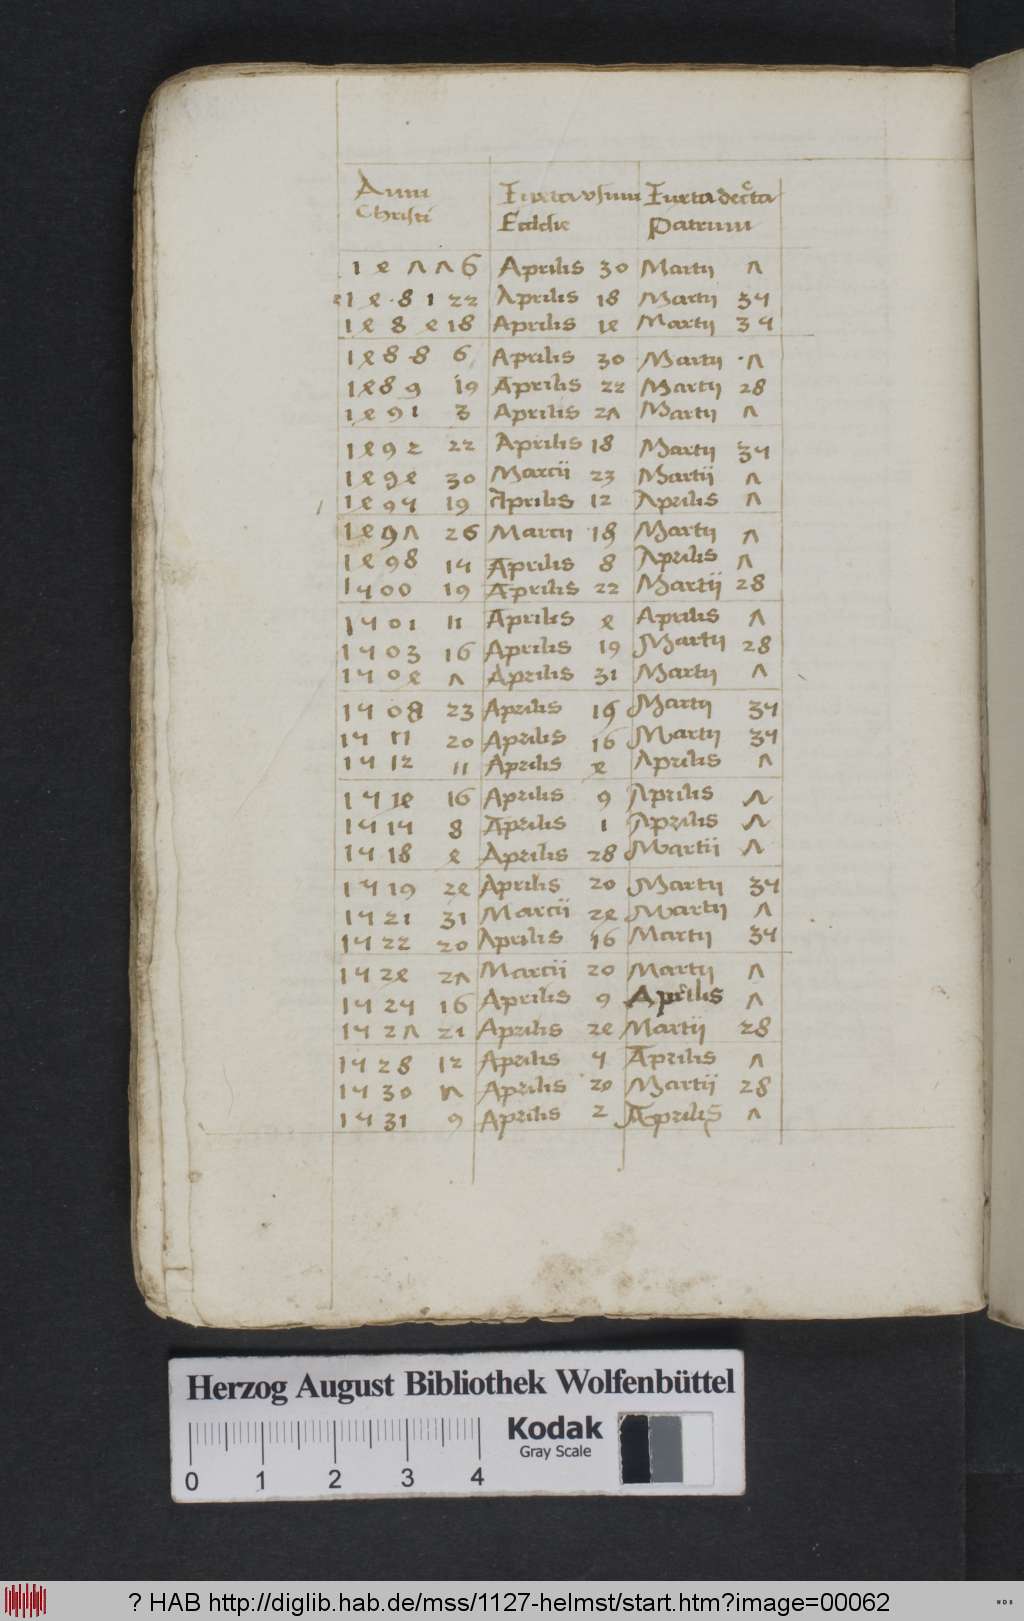 Anni Iuxta vsum Iuxta decreta
Christi Ecclesie Patrum
1 4 7 7 6 Aprilis 30 Martij 7
1 4 8 1 22 Aprilis 18 Martij 35
1 4 8 4 18 Aprilis 14 Martij 35
1 4 8 8 6 Aprilis 30 Martij 7
1 4 8 9 19 Aprilis 22 Martij 28
1 4 9 1 3 Aprilis 27 Martij 7
1 4 9 2 22 Aprilis 18 Martij 35
1 4 9 4 30 Marcii 23 Martij 7
1 4 9 5 19 Aprilis 12 Aprilis 7
1 4 9 7 26 Marcii 18 Martij 7
1 4 9 8 15 Aprilis 8 Aprilis 7
1 5 0 0 19 Aprilis 22 Martij 28
1 5 0 1 11 Aprilis 4 Aprilis 7
1 5 0 3 16 Aprilis 19 Martij 28
1 5 0 4 7 Aprilis 31 Martij 7
1 5 0 8 23 Aprilis 19 Martij 35
1 5 11 20 Aprilis 16 Martij 35
1 5 12 11 Aprilis 4 Aprilis 7
1 5 14 16 Aprilis 9 Aprilis 7
1 5 15 8 Aprilis 1 Aprilis 7
1 5 18 4 Aprilis 28 Martij 7
1 5 19 24 Aprilis 20 Martij 35
1 5 21 31 Marcii 24 Martij 7
1 5 22 20 Aprilis 16 Martij 35
1 5 24 27 Marcii 20 Martij 7
1 5 25 16 Aprilis 9 Aprilis 7
1 5 27 21 Aprilis 24 Martij 28
1 5 28 12 Aprilis 5 Aprilis 7
1 5 30 17 Aprilis 20 Martij 28
1 5 31 9 Aprilis 2 Aprilis 7
Herzog August Bibliothek Wolfenbüttel
Kodak
Gray Scale
0 1 2 3 4
? HAB http://diglib.hab.de/mss/1127-helmst/start.htm?image=00062